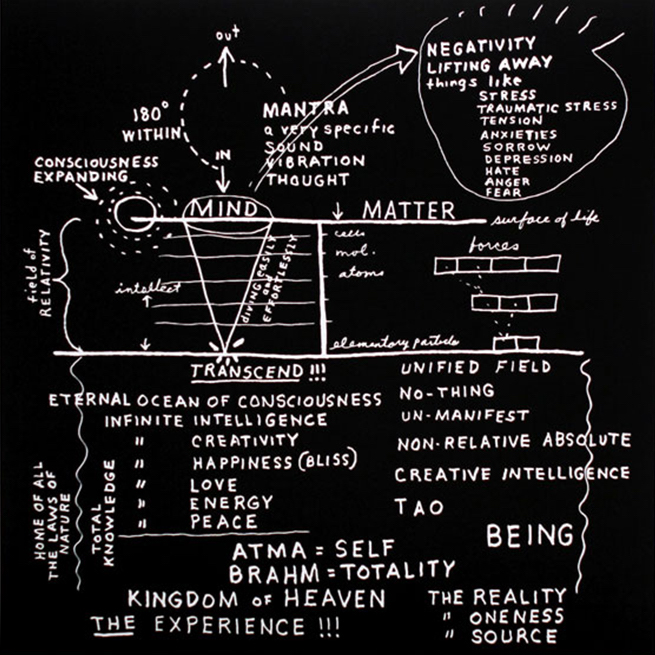 out
180°
WITHIN
IN
MANTRA
a very specific
SOUND
VIBRATION
THOUGHT
NEGATIVITY
LIFTING AWAY
things like
STRESS
TRAUMATIC STRESS
TENSION
ANXIETIES
SORROW
DEPRESSION
HATE
ANGER
FEAR
CONSCIOUSNESS
EXPANDING
MIND
MATTER
surface of life
field of
RELATIVITY
intellect
DIVING EASILY
and
EFFORTLESSLY
cells
mol.
atoms
elementary particle
forces
TRANSCEND !!!
ETERNAL OCEAN OF CONSCIOUSNESS
INFINITE INTELLIGENCE
" CREATIVITY
" HAPPINESS (BLISS)
" LOVE
" ENERGY
" PEACE
UNIFIED FIELD
NO-THING
UN-MANIFEST
NON-RELATIVE ABSOLUTE
CREATIVE INTELLIGENCE
TAO
BEING
HOME OF ALL
THE LAWS OF
NATURE
TOTAL
KNOWLEDGE
ATMA = SELF
BRAHM = TOTALITY
KINGDOM of HEAVEN
THE EXPERIENCE !!!
THE REALITY
" ONENESS
" SOURCE